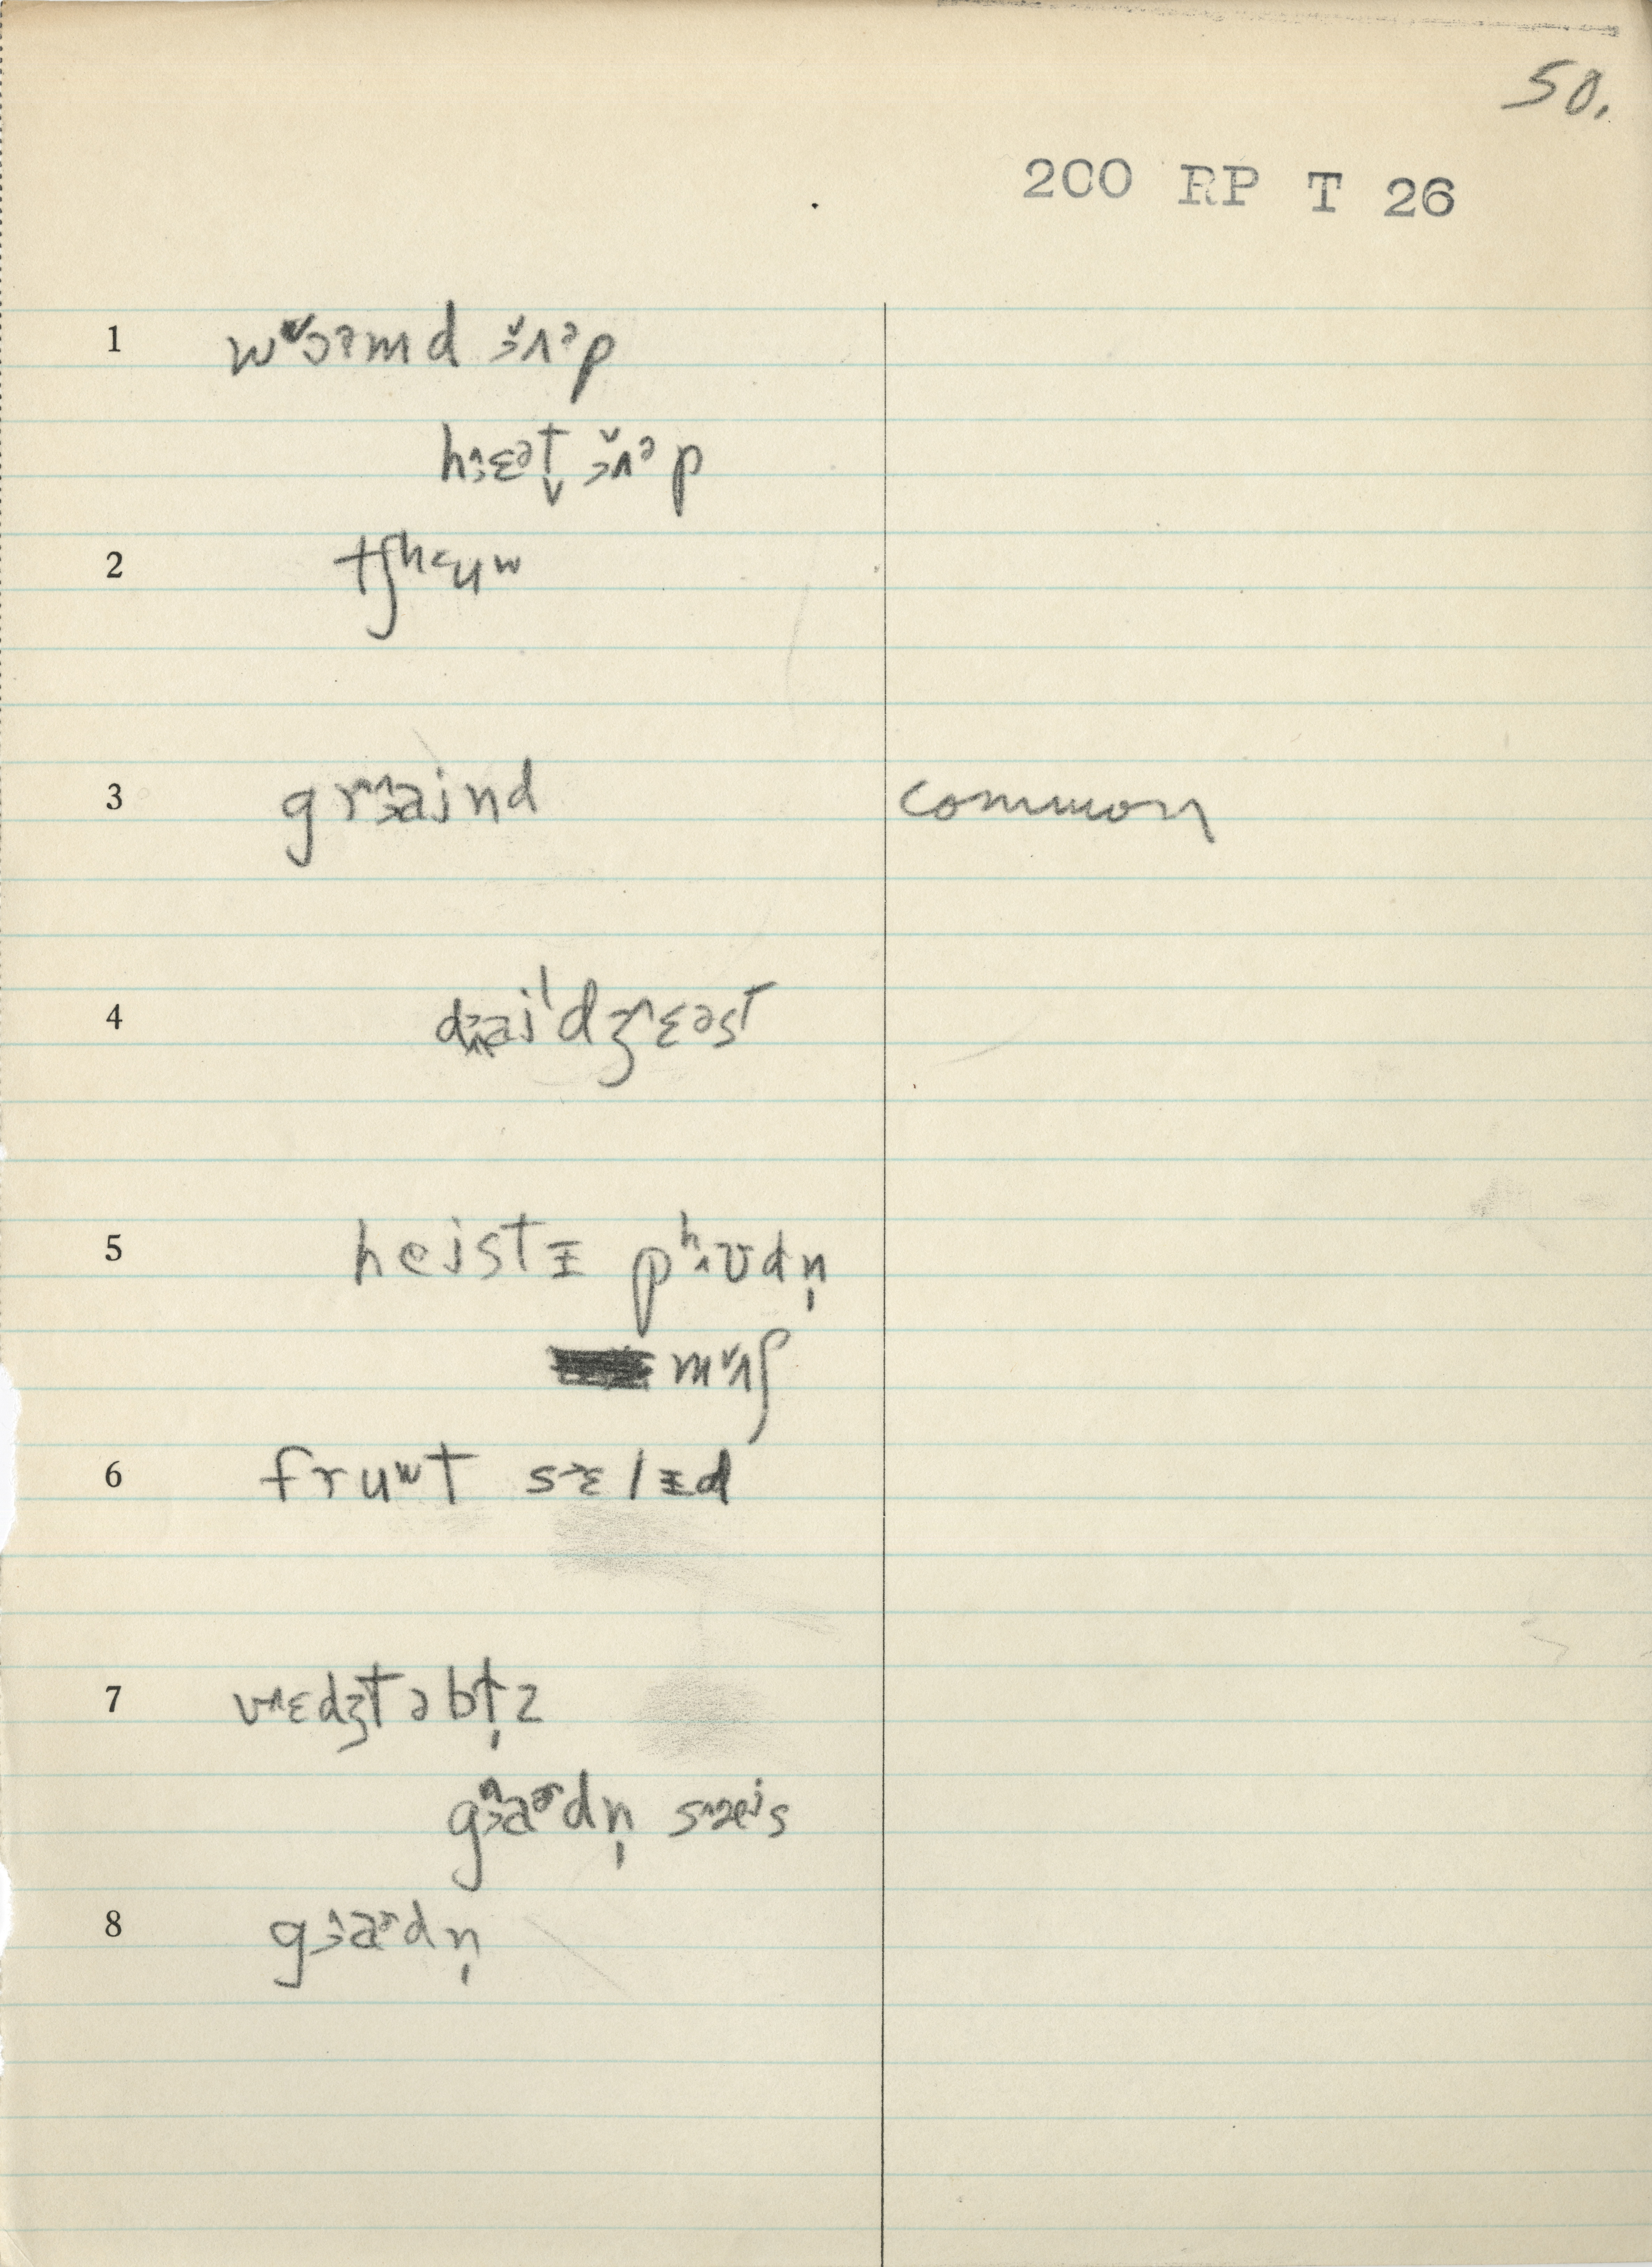 50.
200 RP T 26
1 wɔəmd ʌəp
hɛət ʌəp
2 tʃʰuʷ
3 graind common
4 daiˈdʒɛəst
5 heistɨ pʰʊdn̩
mʌʃ
6 fruʷt sɛlɨd
7 vɛdʒtəbɫ̩z
gaɚdn̩ sæis
8 gaɚdn̩